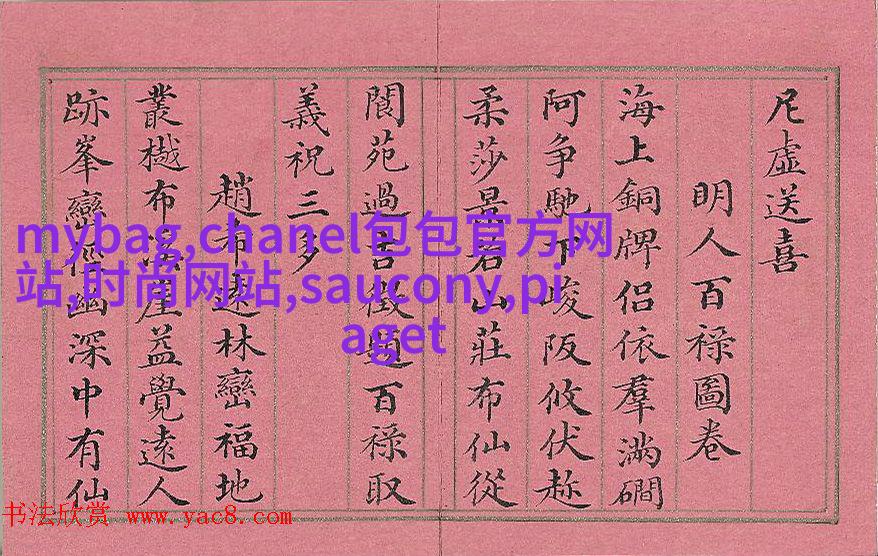 尼虛送喜
明人百祿圖卷
海上銅牌侶依羣滿磵
阿爭馳下峻阪攸伏趂
柔莎景若山莊布仙從
閬苑過吉徵題百祿取
義祝三多
趙布遠林巒福地
叢樾布濩崖益覺遠人
跡峯巒徑幽深中有仙
mybag,chanel包包官方网
站,时尚网站,saucony,pi
aget
书法欣赏 www.yac8.com